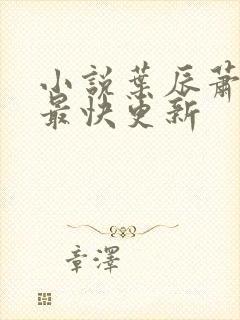 小說葉辰蕭
最快更新
章澤